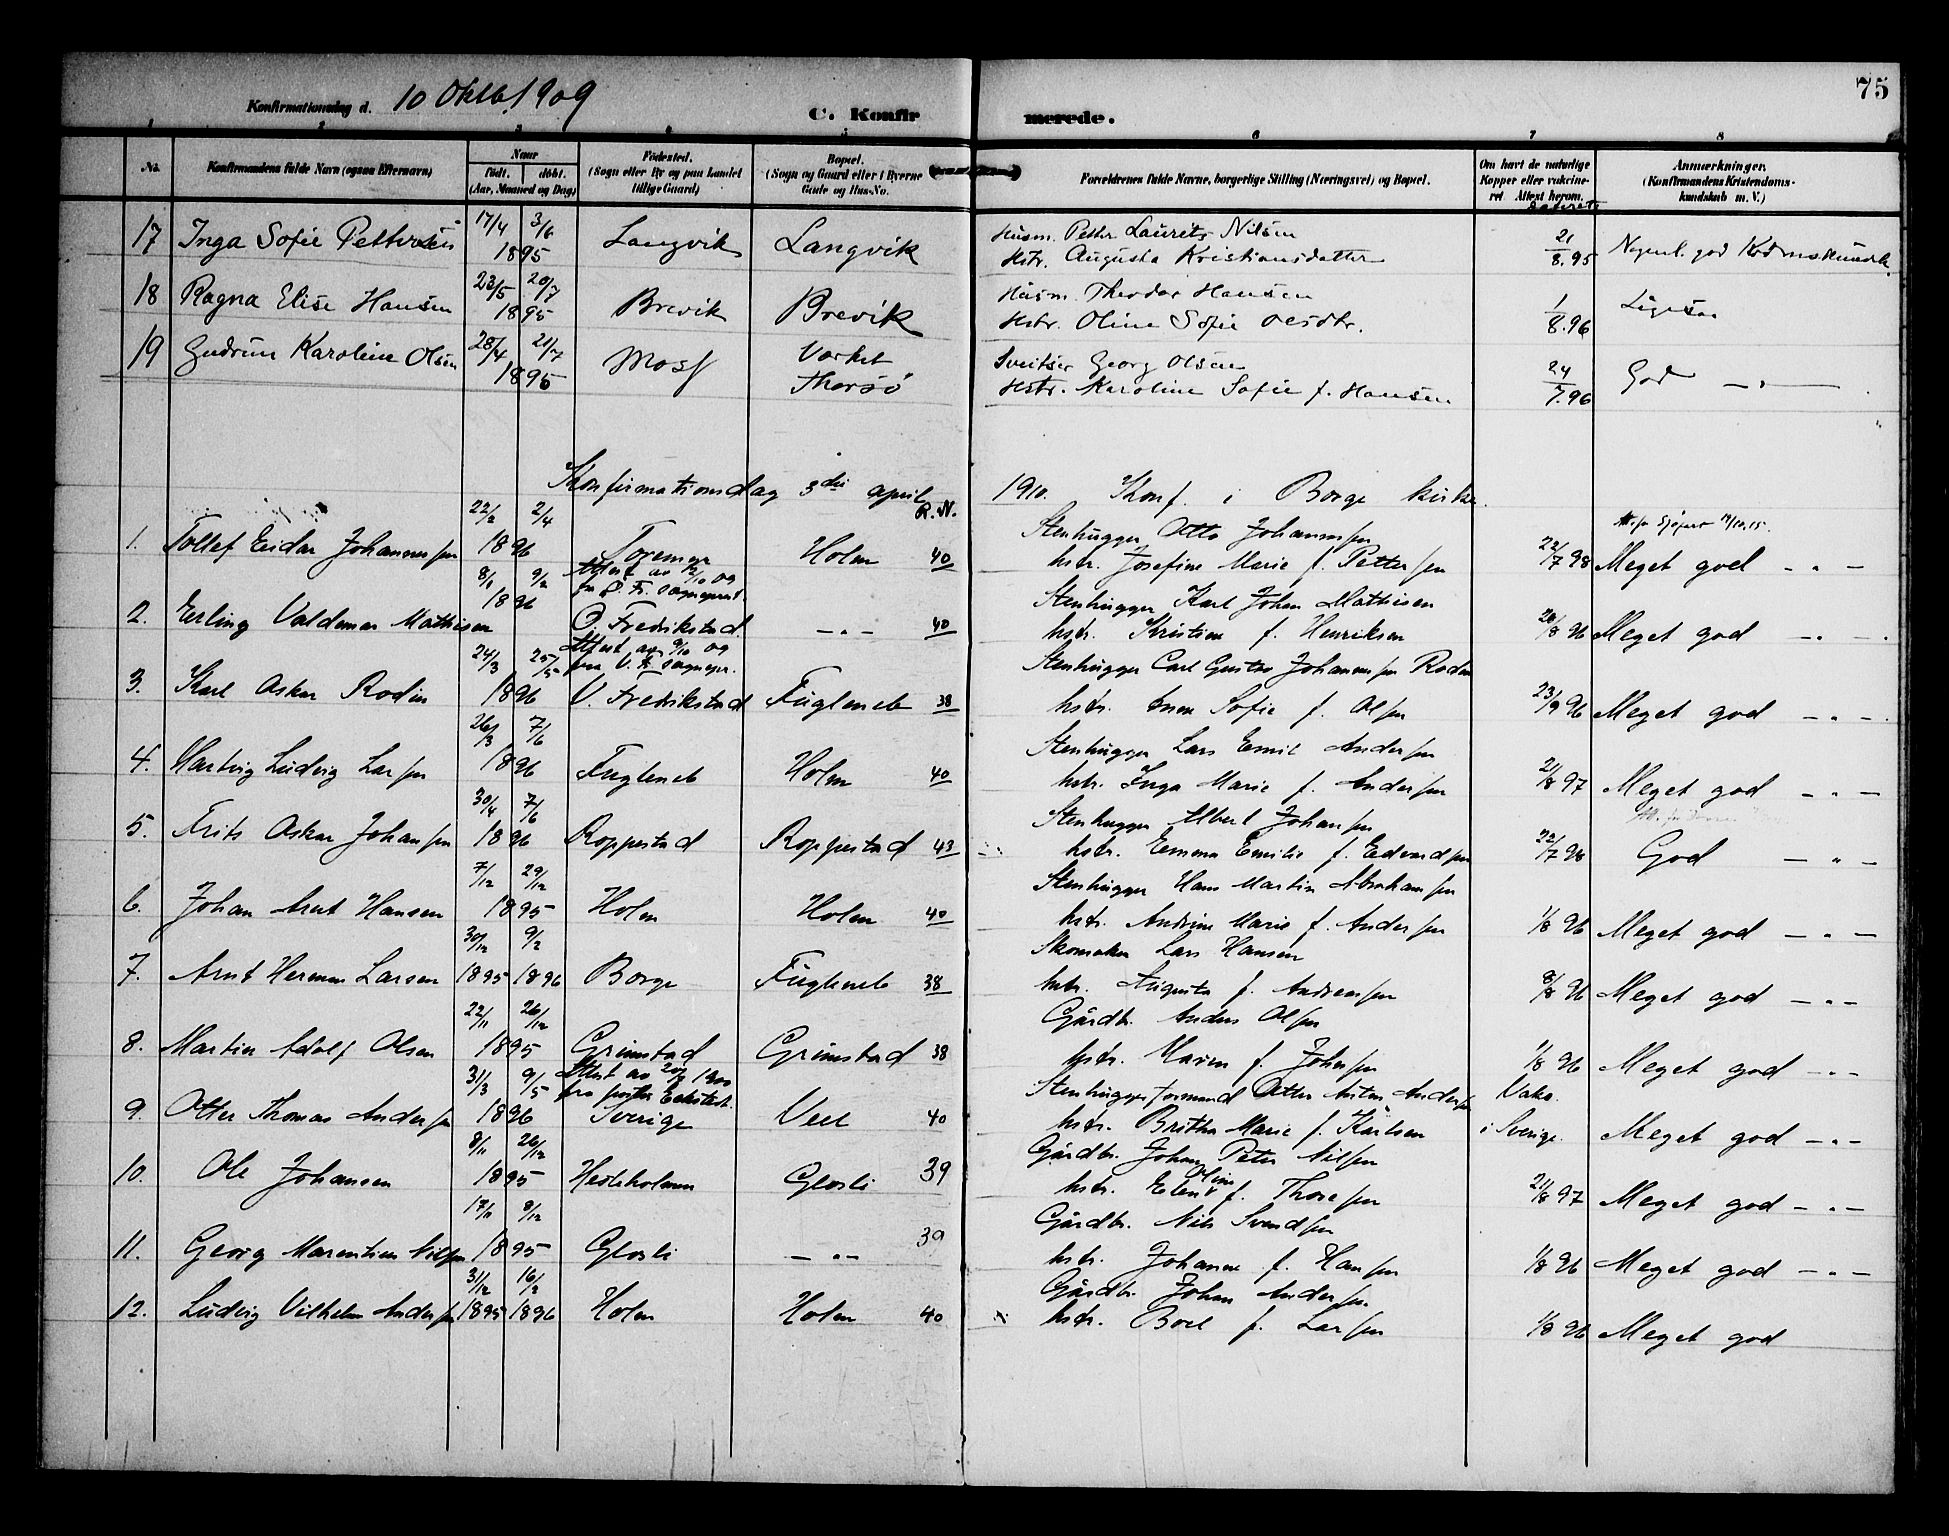 75
Konfirmationsdag d. 10 Oktb. 1909
C. Konfirmerede.
1 2 3 4 5 6 7 8
No.
Konfirmandens fulde Navn (ogsaa Efternavn)
Naar
født. døbt.
(Aar, Maaned og Dag)
Fødested.
(Sogn eller By og paa Landet
tillige Gaard)
Bopæl.
(Sogn og Gaard eller i Byerne
Gade og Hus-No.
Forældrenes fulde Navne, borgerlige Stilling (Næringsvei) og Bopæl.
Om havt de naturlige
Kopper eller vakcine-
ret Attest herom.
Anmærkninger.
(Konfirmandens Kristendoms-
kundskab m. V.)
17 Inga Sofie Pettersen 17/4 3/6 1895 Langvik Langvik Husm. Petter Laurits Nilsen
Hstr. Augusta Kristiansdatter 21/8.95
18 Ragna Elise Hansen 23/5 20/7 1895 Brevik Brevik Husm. Theodor Hansen
Hstr. Oline Sofie Olsdtr. 1/8.96 Ligesaa
19 Gudrun Karoline Olsen 28/4 21/7 1895 Moss Varket
Thorsø Sveitser Georg Olsen
Hstr. Karoline Sofie f. Hansen 24/7.96 God — " —
Konfirmationsdag 3die april 1910. Konf. i Borge kirke.
R. N.
1. Tollef Eidar Johannessen 22/2 2/4 1896 Toremyr Holm 40 Stenhugger Otto Johannessen
hstr. Josefine Marie f. Pettersen 22/7 98 Meget god - " -
2. Erling Valdemar Mathisen 8/1 9/2 1896 Attest av 12/10 09
fra Ø. Fr. sogneprest.
Ø. Fredrikstad. — " — 40 Stenhugger Karl Johan Mathisen
hstr. Kristine f. Henriksen 20/8 96 Meget god - " -
3. Karl Oskar Rodin 24/3 25/5 1896 Attest av 9/10 09
fra V. Fr. sognepr.
V. Fredrikstad Fugleneb 38 Stenhugger Carl Gustav Johannessen Rodin
hstr. Anna Sofie f. Olsen 23/9 96 Meget god - " -
4. Hartvig Ludvig Larsen 26/3 7/6 1896 Fugleneb Holm 40 Stenhugger Lars Emil Andersen
hstr. Inga Marie f. Andersen 21/8 97 Meget god - " -
5. Frits Oskar Johansen 30/4 7/6 1896 Roppestad Roppestad 43 Stenhugger Albert Johansen
hstr. Emma Emilie f. Edvardsen 22/7 98 God — " —
6. Johan Arnt Hansen 7/12 29/12 1895 Holm Holm 40 Stenhugger Hans Martin Abrahamsen
hstr. Andrine Marie f. Andersen 1/8 96 Meget god — " —
7. Arnt Herman Larsen 30/12 1895 9/2 1896 Borge Fugleneb 38 Skomaker Lars Hansen
hstr. Augusta f. Andreassen 8/8 96 Meget god — " —
8. Martin Adolf Olsen 22/11 26/12 1895 Grimstad Grimstad 38 Gårdbr. Anders Olsen
hstr. Maren f. Johnsen 1/8 96 Meget god - " -
9. Otter Thomas Andersen 31/3 9/5 1896 Attest av 1900
fra
Sverige Veel 40 Stenhuggerformand Otter Anton Andersen
hstr. Britha Marie f. Karlsen Vakc.
i Sverige. Meget god - " -
10. Ole Johansen 8/11 26/12 1895 Hestholmen Glosli 39 Gårdbr. Johan Peter Nilsen
hstr. Elen Oline f. Thoresen 21/8 97 Meget god - " -
11. Georg Marentius Nilsen 17/11 8/12 1895 Glosli — " — 39 Gårdbr. Nils Svendsen
hstr. Johanne f. Hansen 1/8 96 Meget god - " -
12. Ludvig Vilhelm Andersen 31/12 1895 16/2 1896 Holm Holm 40 Gårdbr. Johan Andersen.
hstr. Boel f. Larsen 1/8 96 Meget god